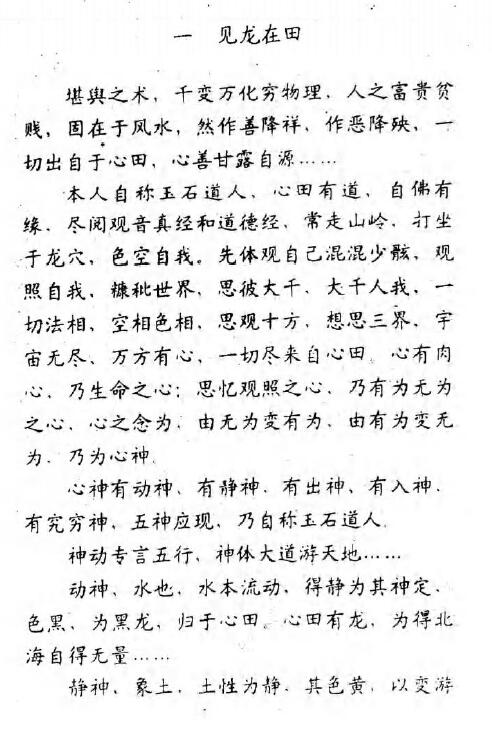 一 见龙在田
堪舆之术，千变万化穷物理，人之富贵贫
贱，固在于风水，然作善降祥，作恶降殃，一
切出自于心田，心善甘露自源……
本人自称玉石道人，心田有道，自佛有
缘、尽阅观音真经和道德经，常走山岭，打坐
于龙穴，色空自我。先体观自己混混少骸，观
照自我，糠秕世界，思彼大千，大千人我，一
切法相，空相色相，思观十方，想思三界，宇
宙无尽，万方有心，一切尽来自心田。心有肉
心，乃生命之心；思忆观照之心，乃有为无为
之心，心之念为，由无为变有为，由有为变无
为，乃为心神。
心神有动神、有静神、有出神、有入神、
有究穷神，五神应现，乃自称玉石道人。
神动专言五行，神体大道游天地……
动神、水也，水本流动，得静为其神定、
色黑、为黑龙，归于心田。心田有龙，为得北
海自得无量……
静神、象土，土性为静，其色黄，以变游